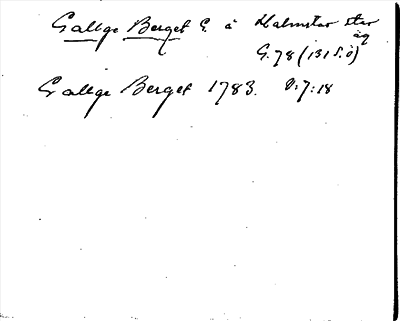 Gallge Berget G. å Halmstar star
äg
G. 78 (131 S.Ö)
Gallge Berget 1783. D.7:18